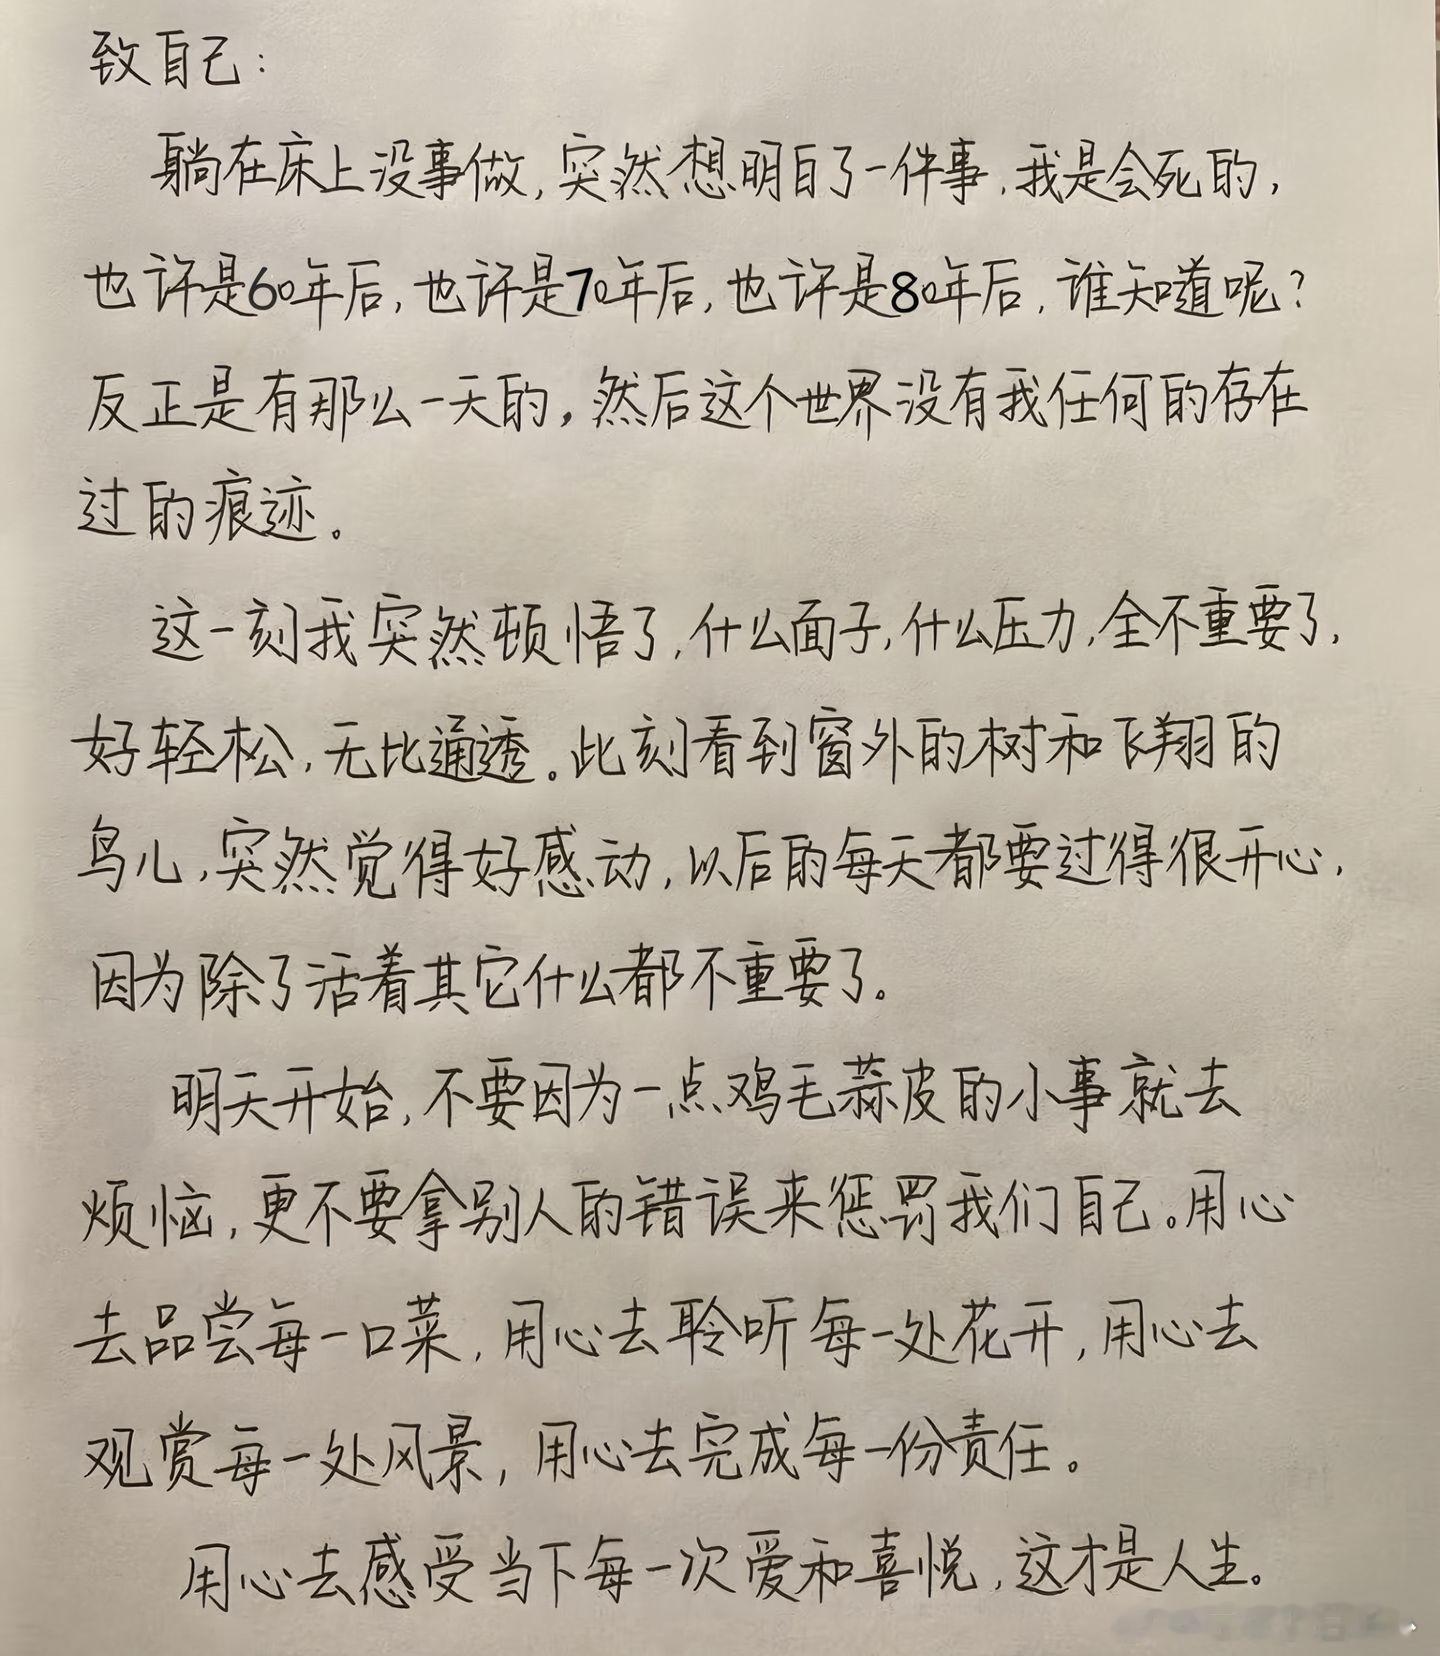 致自己：
躺在床上没事做，突然想明白了一件事，我是会死的，
也许是60年后，也许是70年后，也许是80年后，谁知道呢？
反正是有那么一天的，然后这个世界没有我任何的存在
过的痕迹。
这一刻我突然顿悟了，什么面子，什么压力，全不重要了，
好轻松，无比通透。此刻看到窗外的树和飞翔的
鸟儿，突然觉得好感动，以后的每天都要过得很开心，
因为除了活着其它什么都不重要了。
明天开始，不要因为一点鸡毛蒜皮的小事就去
烦恼，更不要拿别人的错误来惩罚我们自己。用心
去品尝每一口菜，用心去聆听每一处花开，用心去
观赏每一处风景，用心去完成每一份责任。
用心去感受当下每一次爱和喜悦，这才是人生。